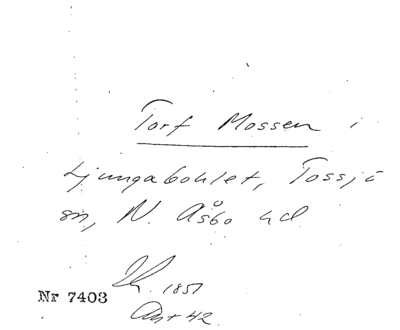 Torf Mossen i
Ljungabohlet, Tossjö
sn, N. Åsbo hd
1851
Nr 7403
Ant 42